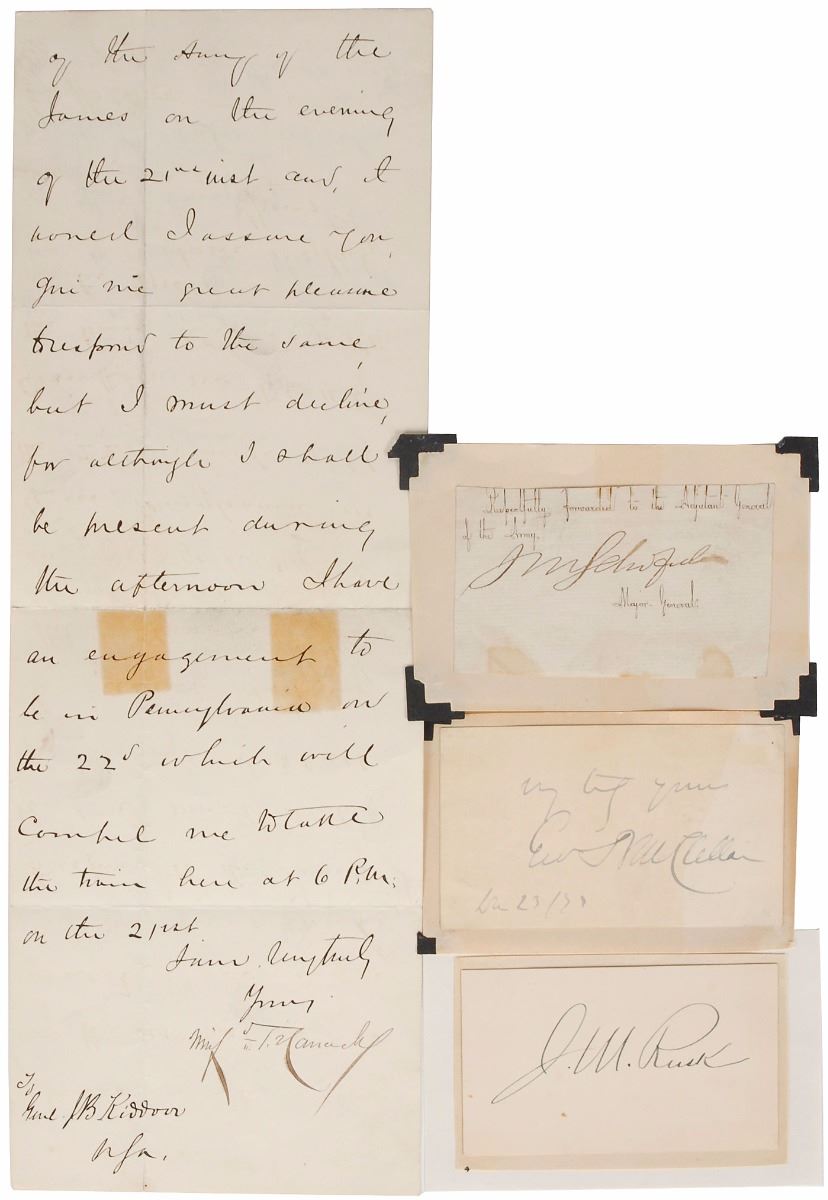 of the Army of the
James on the evening
of the 21st inst. and, it
would I assure you,
give me great pleasure
to respond to the same,
but I must decline,
for although I shall
be present during
the afternoon I have
an engagement to
be in Pennsylvania on
the 22d which will
Compel me to take
the train here at 6 P.M.
on the 21st
I am Very truly
Yours,
Winf'd S. Hancock
To
Genl. J B Kiddoo
Respectfully forwarded to the Adjutant General
of the Army.
J M Schofield
Major General
Very truly yours
Geo B McClellan
J. M. Rusk